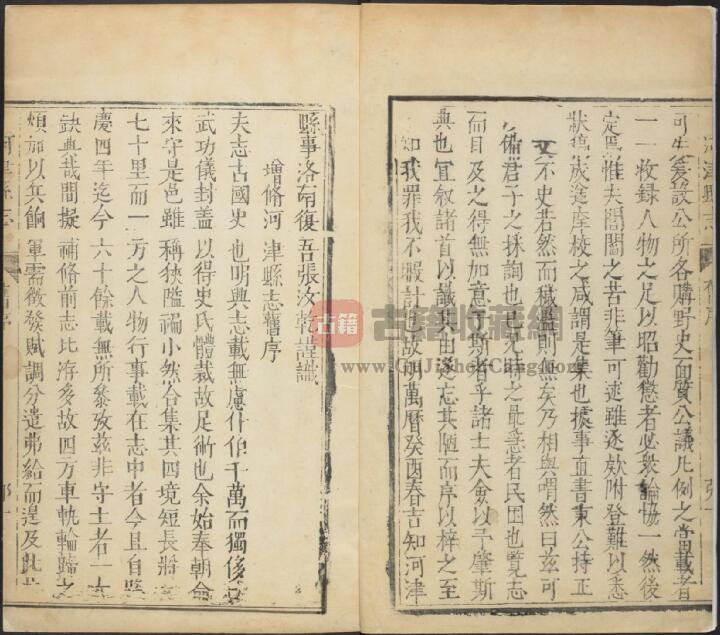 河津縣志
舊序
可生爰設公所各購野史面質公議凡例之當載者
一一收錄人物之足以昭勸懲者必衆論協一然後
定焉惟夫閭閻之苦非筆可述雖逐款附登難以悉
狀稿成送庠校之咸謂是集也據事直書秉公持正
文不史若然而穢濫則無矣乃相與喟然曰茲可
備君子之採詢也已見時之最急者民困也覽志
而目及之得無加意于斯者乎諸士夫僉以予肇斯
典也宜叙諸首以識其由遂忘其陋而序以梓之至
知我罪我不暇計也故明萬曆癸酉春吉知河津
縣事洛南復吾張汝乾謹識
增修河津縣志舊序
夫志古國史也明興志載無慮什伯千萬而獨侈
武功儀封蓋以得史氏體裁故足術也余始奉朝命
來守是邑雖稱狹隘褊小然合集其四境短長將
七十里而一方之人物行事載在志中者今且自
慶四年迄今六十餘載無所叅攷茲非守土者一大
缺典哉間擬補修前志比涖多故四方車軌輪蹄之
煩加以兵餉軍需徵發賦調分遣弗給而遑及此
河津縣志
舊序
古籍
古籍收藏網
www.GuJiShouCang.com